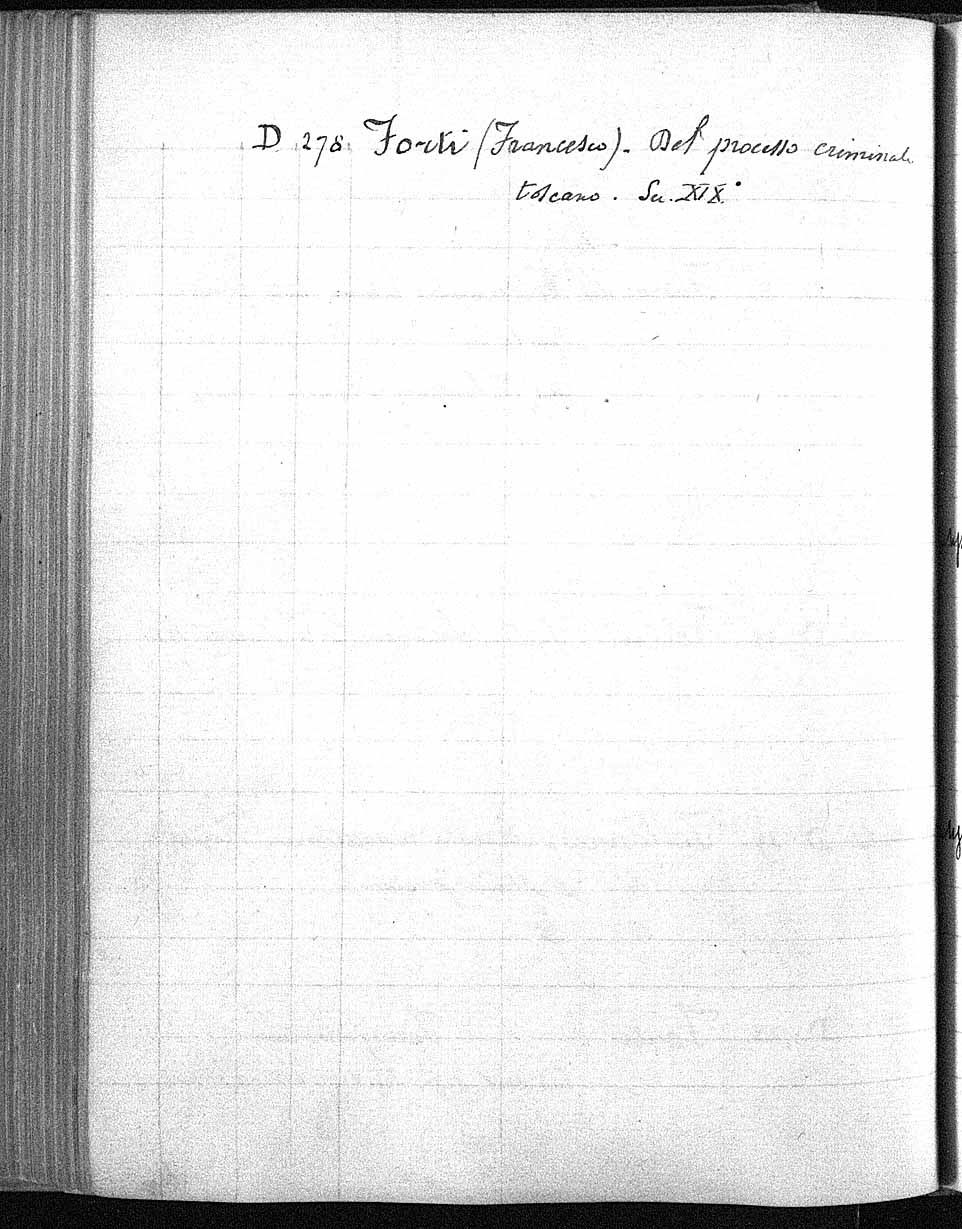 D 278 Forti (Francesco). Del processo criminale
toscano. Sec. XIX.°